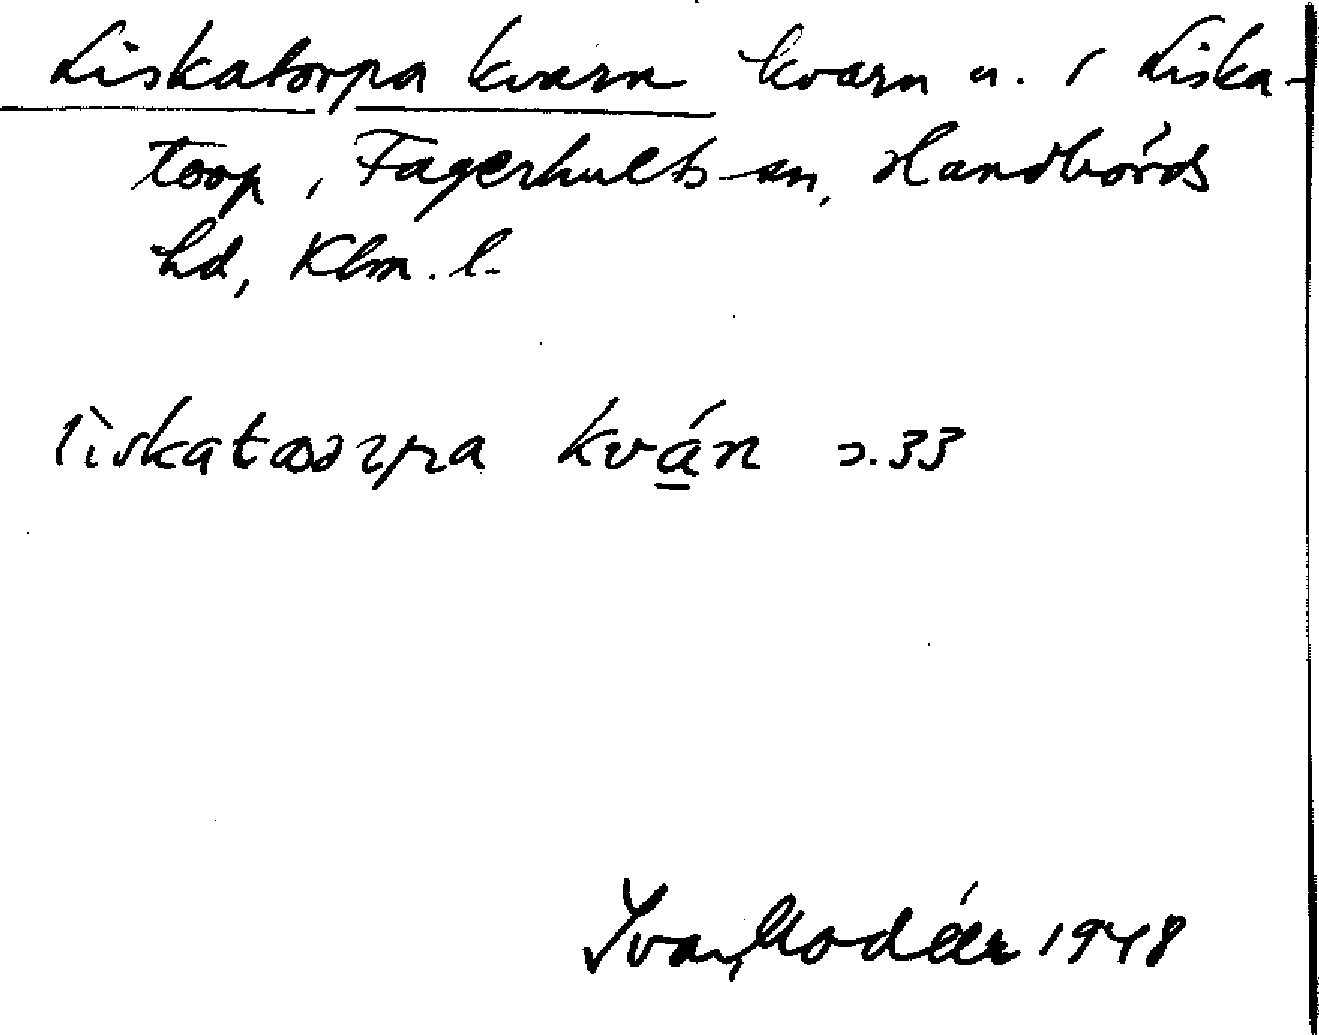 Liskatorpa kvarn kvarn n. i Liska-
torp, Fagerhults sn, Handbörds
hd, Klm. l.
kván 2.33
Ivar Modéer 1948